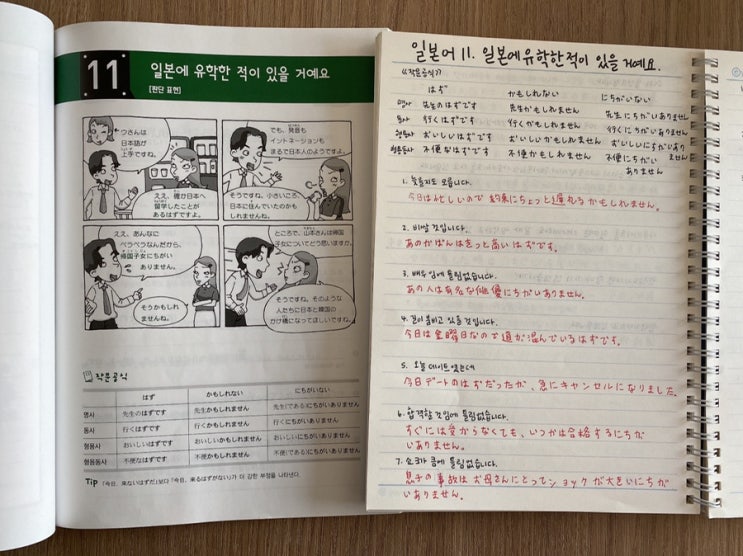 11
일본에 유학한 적이 있을 거예요
[판단 표현]
ウさんは
日本語が
上手ですね。
ええ、確か日本へ
留学したことが
あるはずですよ。
でも、発音も
イントネーションも
まるで日本人のようですよ。
そうですね。小さいころ、
日本に住んでいたのかも
しれませんね。
ええ、あんなに
ぺらぺらなんだから、
帰国子女にちがい
ありません。
そうかもしれ
ませんね。
ところで、山本さんは帰国
子女についてどう思いますか。
そうですね。そのような
人たちに日本と韓国の
かけ橋になってほしいですね。
작문공식
はず かもしれない にちがいない
명사 先生のはずです 先生かもしれません 先生(である)にちがいありません
동사 行くはずです 行くかもしれません 行くにちがいありません
형용사 おいしいはずです おいしいかもしれません おいしいにちがいありません
형용동사 不便なはずです 不便かもしれません 不便(である)にちがいありません
Tip 「今日、来ないはずだ」보다 「今日、来るはずがない」가 더 강한 부정을 나타낸다.
일본어 11. 일본에 유학한 적이 있을 거예요.
<작문공식>
はず かもしれない にちがいない
명사 先生のはずです 先生かもしれません 先生にちがいありません
동사 行くはずです 行くかもしれません 行くにちがいありません
형용사 おいしいはずです おいしいかもしれません おいしいにちがいありません
형용동사 不便なはずです 不便かもしれません 不便にちがい
ありません
1. 늦을지도 모릅니다.
今日は忙しいので約束にちょっと遅れるかもしれません。
2. 비쌀 것입니다.
あのかばんはきっと高いはずです。
3. 배우임에 틀림없습니다.
あの人は有名な俳優にちがいありません。
4. 길이 붐비고 있을 것입니다.
今日は金曜日なので道が混んでいるはずです。
5. 오늘 데이트였는데
今日デートのはずだったが、急にキャンセルになりました。
6. 합격할 것임에 틀림없습니다.
すぐには受からなくても、いつかは合格するにちが
いありません。
7. 쇼크가 큼에 틀림없습니다.
息子の事故はお母さんにとってショックが大きいにちが
いありません。